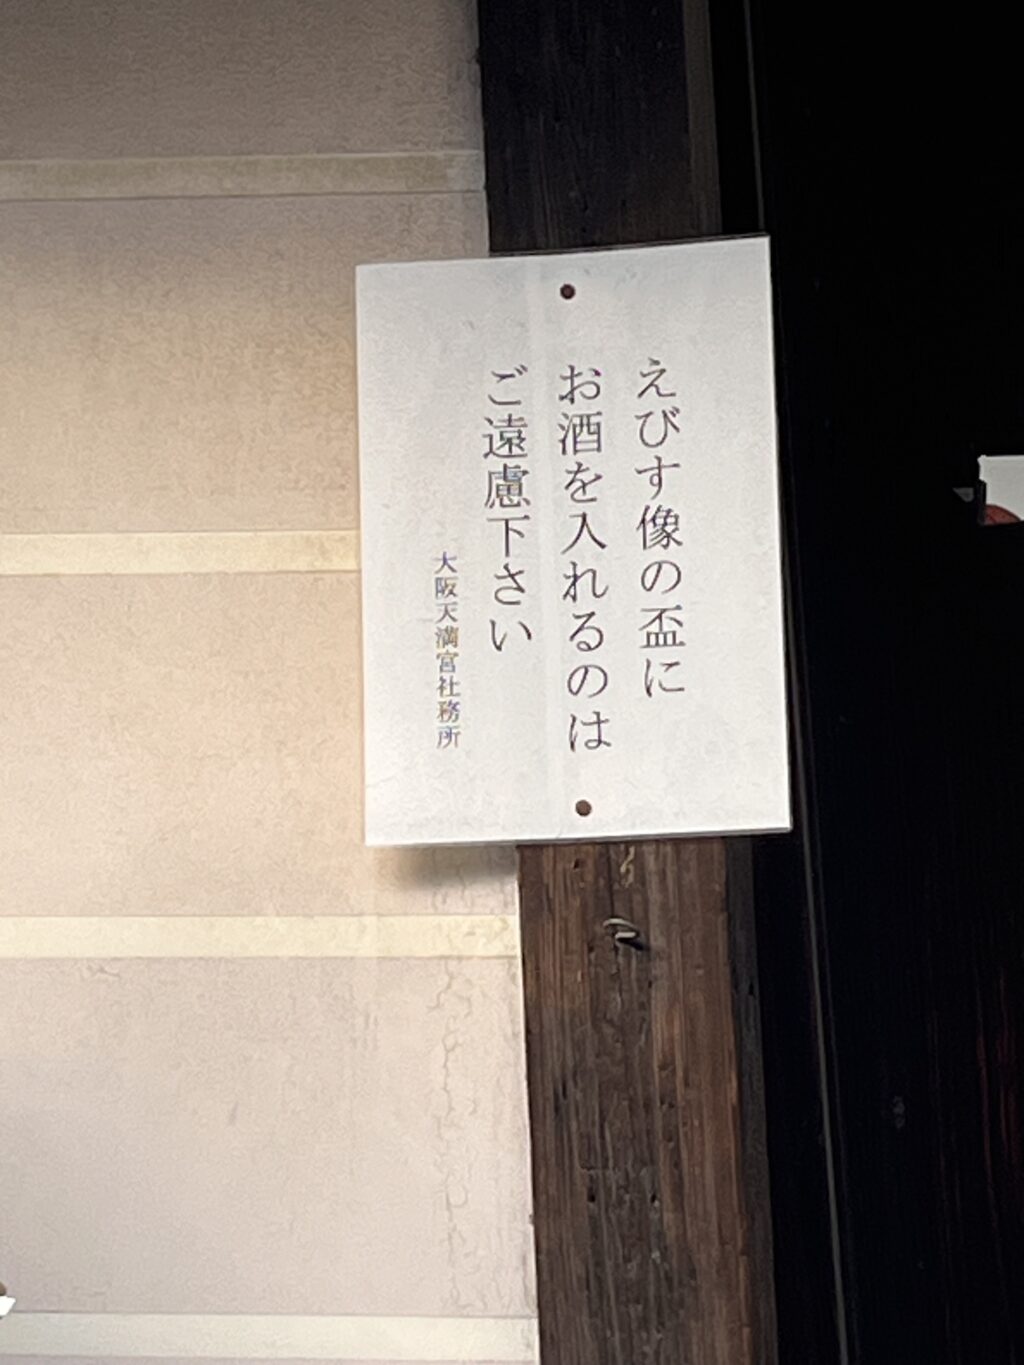 えびす像の盃に
お酒を入れるのは
ご遠慮下さい
大阪天満宮社務所